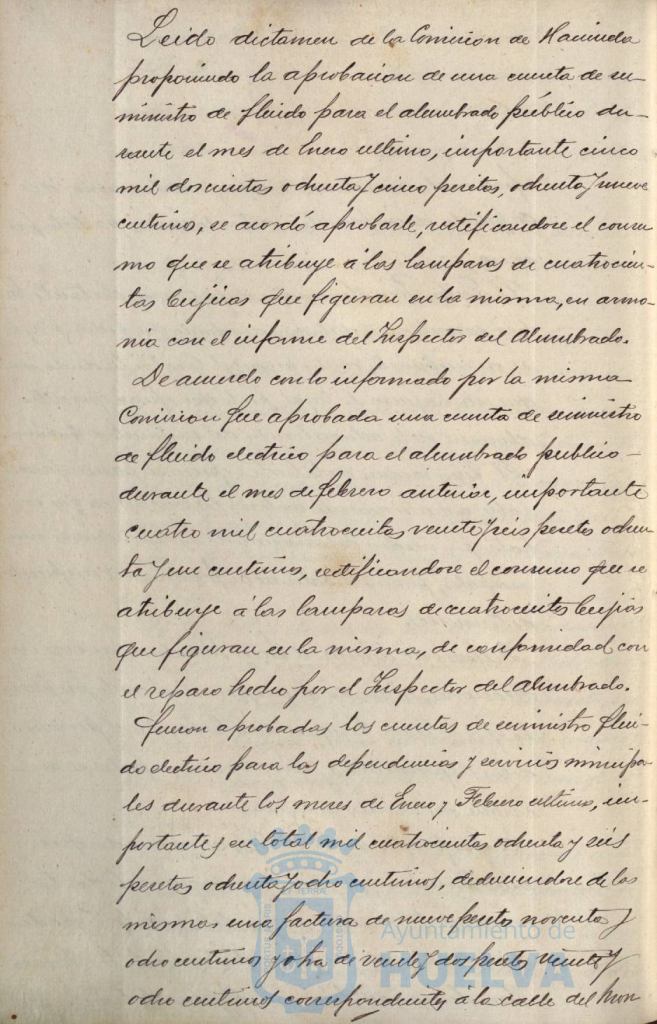 Leido dictamen de la Comision de Hacienda
proponiendo la aprobacion de una cuenta de su-
ministro de fluido para el alumbrado público du-
rante el mes de Enero ultimo, importante cinco
mil doscientas ochenta y cinco pesetas, ochenta y nueve
centimos, se acordó aprobarle, rectificandose el consu
mo que se atribuye á las lamparas de cuatrocien-
tas bujias que figuran en la misma, en armo-
nia con el informe del Inspector del Alumbrado.
De acuerdo con lo informado por la misma
Comision fue aprobada una cuenta de suministro
de fluido electrico para el alumbrado publico -
durante el mes de febrero anterior, importante
cuatro mil cuatrocientas veinte y seis pesetas ochen-
ta y centimos, rectificandose el consumo que se
atribuye á las lamparas de cuatrocientas bujias
que figuran en la misma, de conformidad con
el reparo hecho por el Inspector del alumbrado.
fueron aprobadas las cuentas de suministro flui-
do electrico para las dependencias y servicios municipa-
les durante los meses de Enero y Febrero ultimo, im-
portantes en total mil cuatrocientas ochenta y seis
pesetas ochenta y ocho centimos, deduciendose de las
mismas una factura de nueve pesetas noventa y
ocho centimos y otra de veinte y dos pesetas veinte y
ocho centimos correspondientes á la calle del Mon
Ayuntamiento de
HUELVA